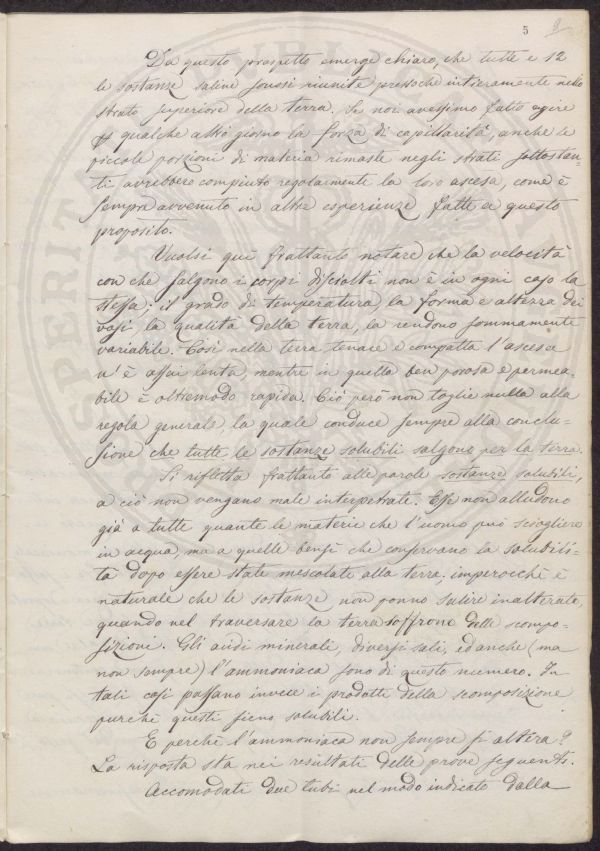 5 9
Da questo prospetto emerge chiaro, che tutte e 12
le sostanze saline sonosi riunite pressochè intieramente nello
strato superiore della terra. Se noi avessimo fatto agire
qualche altro giorno la forza di capillarità, anche le
piccole porzioni di materia rimaste negli strati sottostan-
ti avrebbero compiuto regolarmente la loro ascesa, come è
sempre avvenuto in altre esperienze fatte a questo
proposito.
Vuolsi quì frattanto notare che la velocità
con che salgono i corpi disciolti non è in ogni caso la
stessa; il grado di temperatura la forma e altezza dei
vasi, la qualità della terra, la rendono sommamente
variabile. Così nella terra tenace e compatta l'ascesa
v'è assai lenta, mentre in quella ben porosa e permea-
bile è oltremodo rapida. Ciò però non toglie nulla alla
regola generale la quale conduce sempre alla conclu-
sione che tutte le sostanze solubili salgono per la terra.
Si rifletta frattanto alle parole sostanze solubili,
a ciò non vengano male interpetrate. Esse non alludono
già a tutte quante le materie che l'uomo può sciogliere
in acqua, ma a quelle bensì che conservano la solubili-
tà dopo essere state mescolate alla terra; imperocchè è
naturale che le sostanze non ponno salire inalterate,
quando nel traversare la terra soffrono delle scompo-
sizioni. Gli acidi minerali, diversi sali, ed anche (ma
non sempre) l'ammoniaca sono di questo numero. In
tali casi passano invece i prodotti della scomposizione
purchè questi sieno solubili.
E perchè l'ammoniaca non sempre si altera?
La risposta sta nei resultati delle prove seguenti.
Accomodati due tubi nel modo indicato dalla